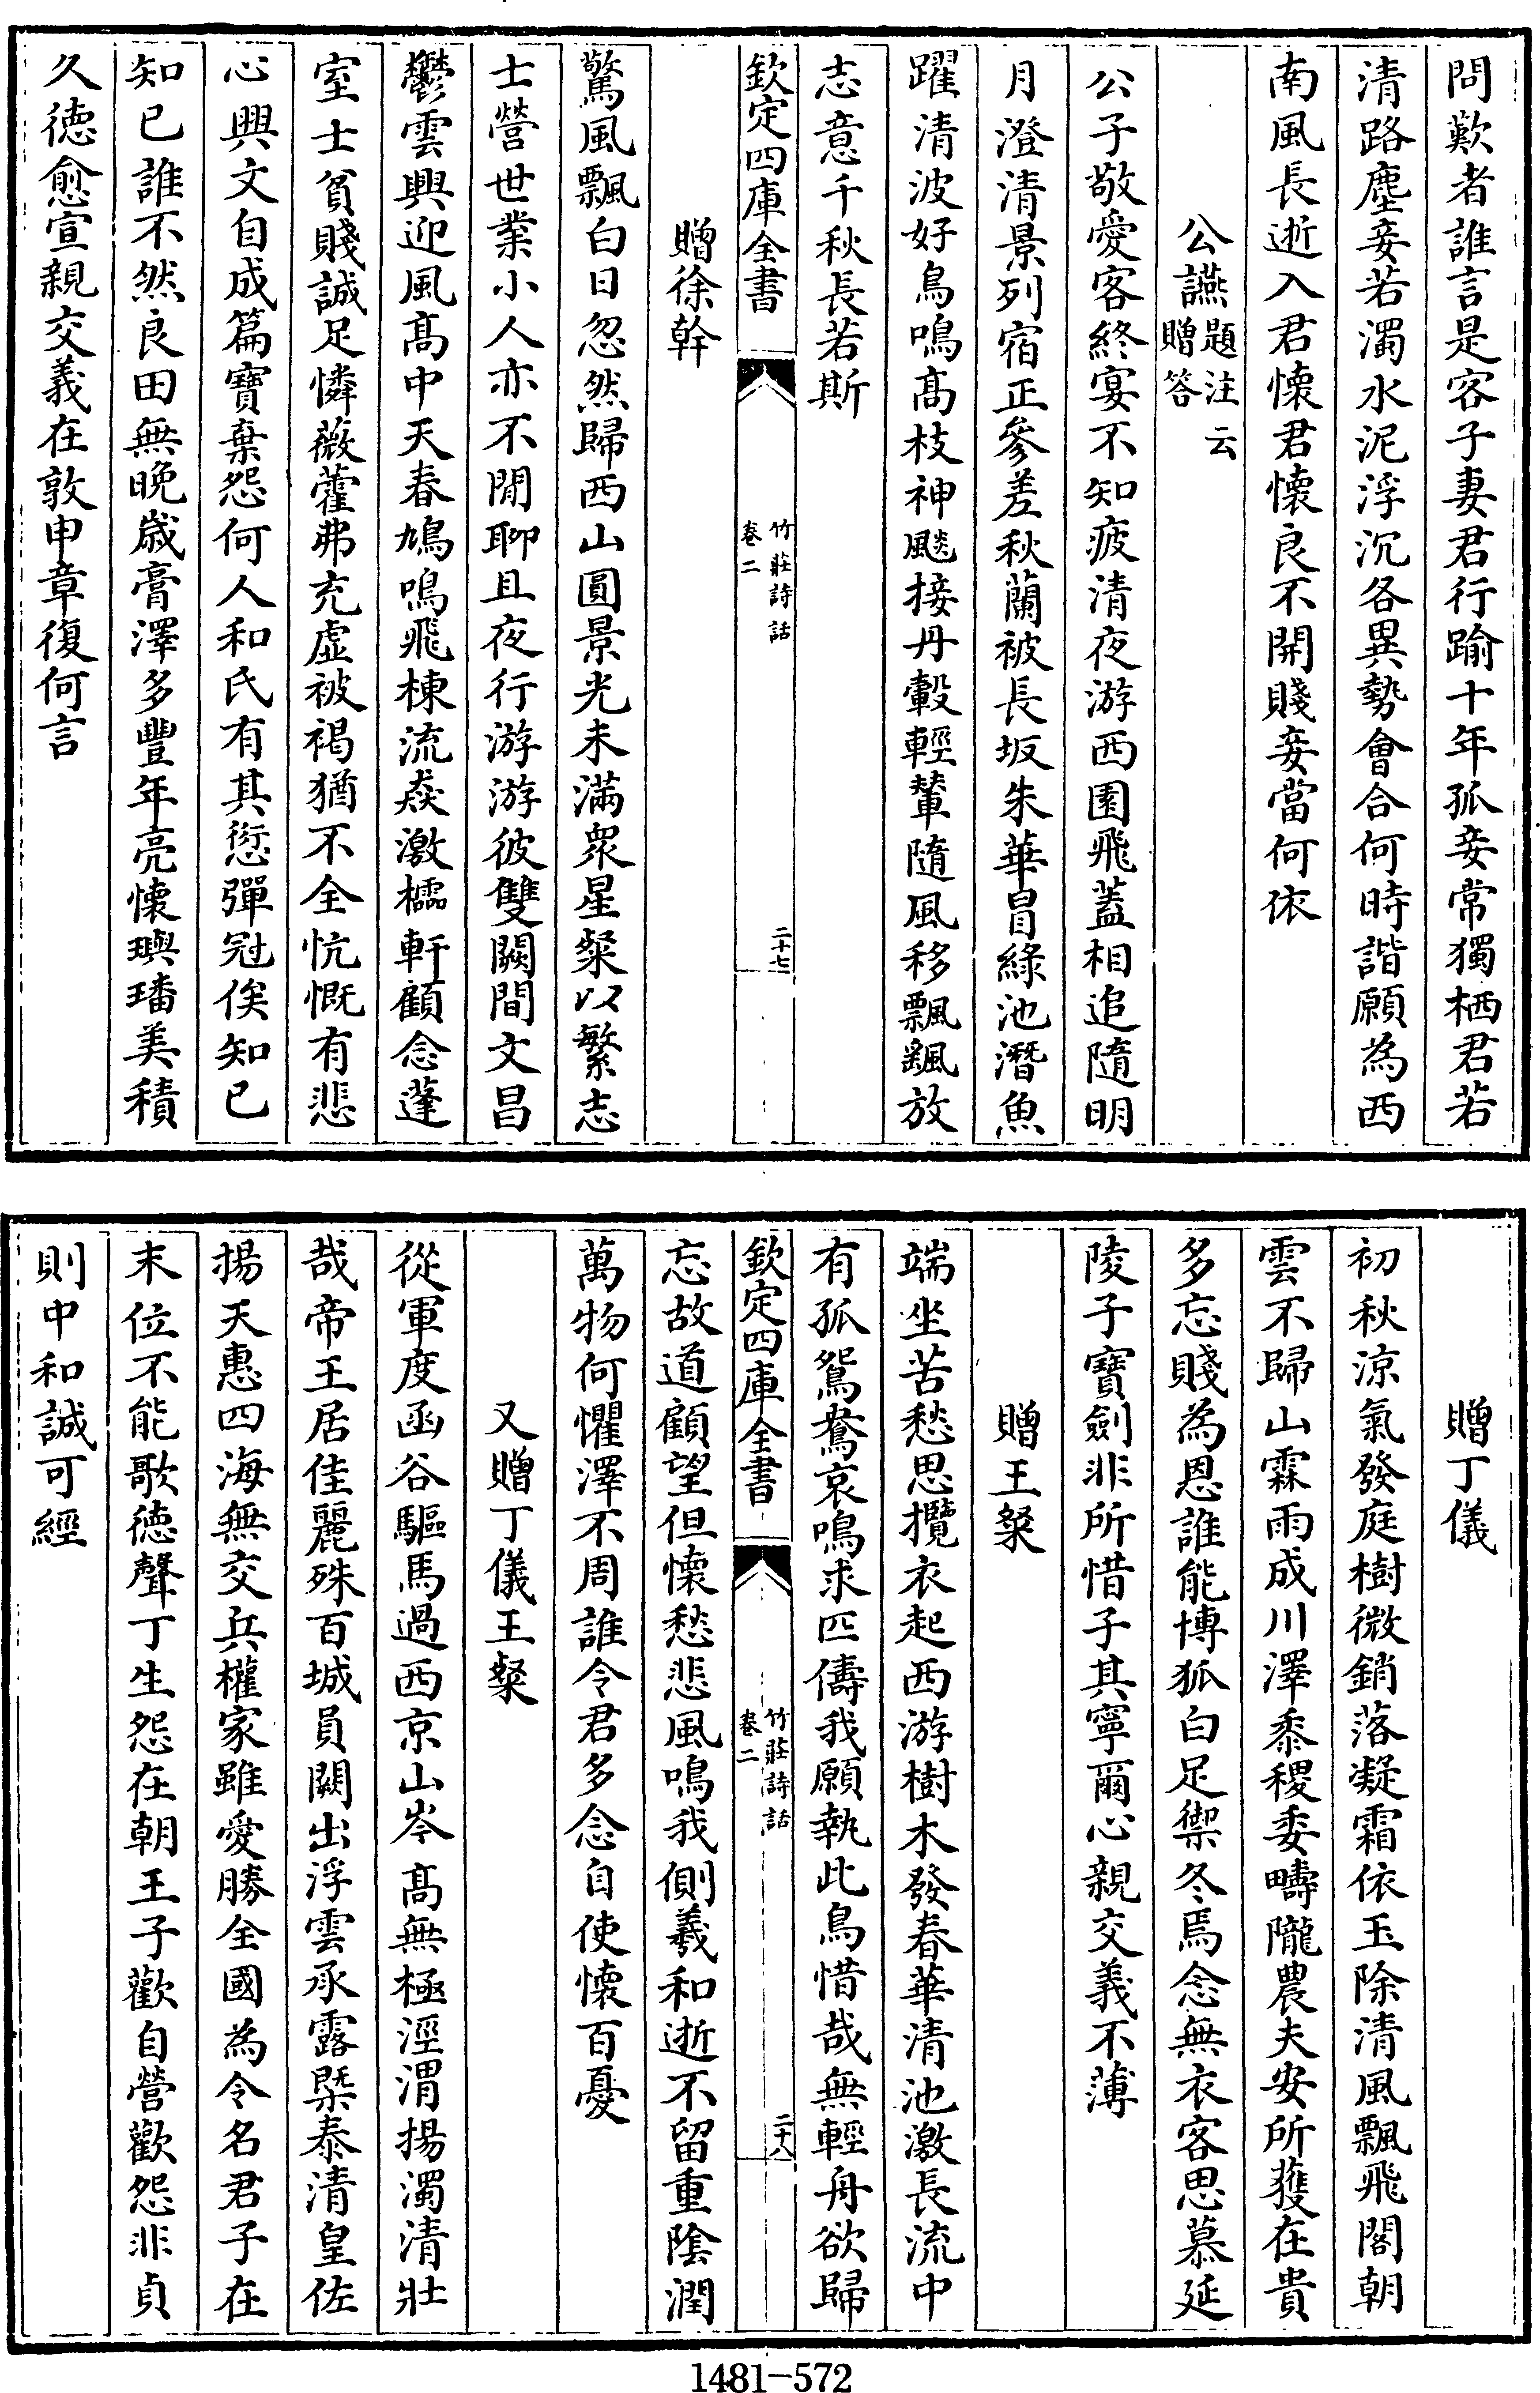 問歎者誰言是客子妻君行踰十年孤妾常獨栖君若
清路塵妾若濁水泥浮沉各異勢會合何時諧願為西
南風長逝入君懷君懷良不開賤妾當何依
公讌題注云贈答
公子敬愛客終宴不知疲清夜游西園飛蓋相追隨明
月澄清景列宿正參差秋蘭被長坂朱華冒綠池潛魚
躍清波好鳥鳴高枝神飈接丹轂輕輦隨風移飄颻放
志意千秋長若斯
欽定四庫全書
竹莊詩話
卷二
二十七
贈徐幹
驚風飄白日忽然歸西山圓景光未滿衆星粲以繁志
士營世業小人亦不閒聊且夜行游游彼雙闕間文昌
鬱雲興迎風高中天春鳩鳴飛棟流猋激櫺軒顧念蓬
室士貧賤誠足憐薇藿弗充虛被褐猶不全忼慨有悲
心興文自成篇寶棄怨何人和氏有其愆彈冠俟知已
知已誰不然良田無晚歲膏澤多豐年亮懷璵璠美積
久德愈宣親交義在敦申章復何言
贈丁儀
初秋涼氣發庭樹微銷落凝霜依玉除清風飄飛閣朝
雲不歸山霖雨成川澤黍稷委疇隴農夫安所獲在貴
多忘賤為恩誰能博狐白足禦冬焉念無衣客思慕延
陵子寶劍非所惜子其寧爾心親交義不薄
贈王粲
端坐苦愁思攬衣起西游樹木發春華清池激長流中
有孤鴛鴦哀鳴求匹儔我願執此鳥惜哉無輕舟欲歸
欽定四庫全書
竹莊詩話
卷二
二十八
忘故道顧望但懷愁悲風鳴我側羲和逝不留重陰潤
萬物何懼澤不周誰令君多念自使懷百憂
又贈丁儀王粲
從軍度函谷驅馬過西京山岑高無極涇渭揚濁清壯
哉帝王居佳麗殊百城員闕出浮雲承露槩泰清皇佐
揚天惠四海無交兵權家雖愛勝全國為令名君子在
末位不能歌德聲丁生怨在朝王子歡自營歡怨非貞
則中和誠可經
1481-572